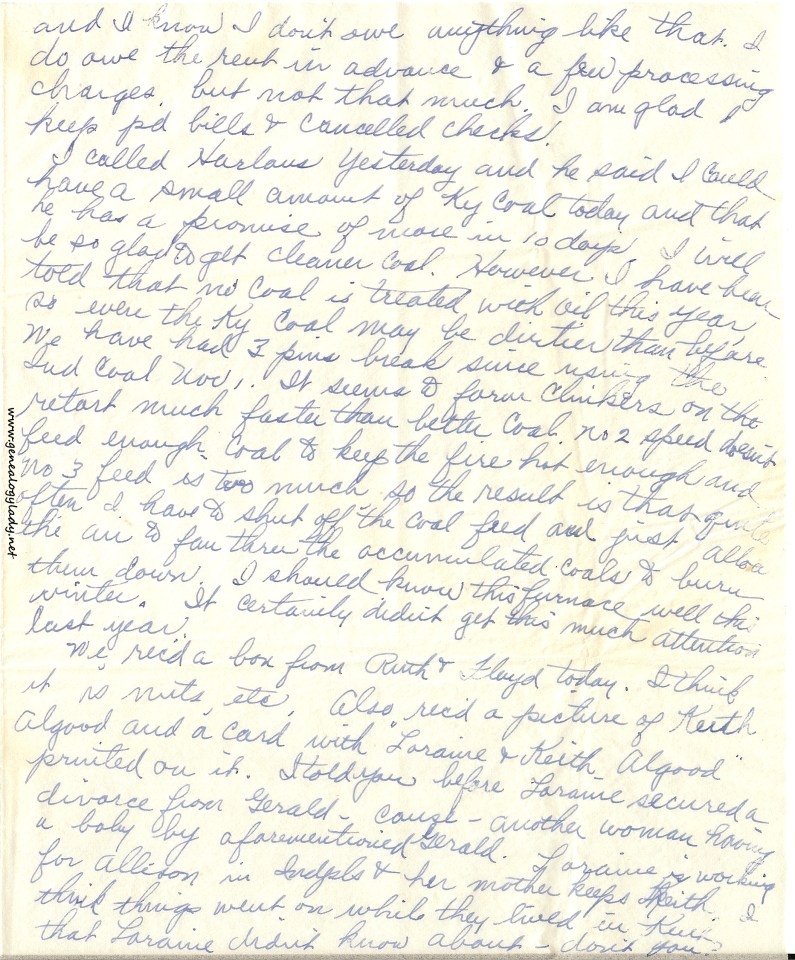 and I know I don't owe anything like that. I
do owe the rent in advance & a few processing
charges, but not that much. I am glad I
keep pd bills & cancelled checks.
I called Harlans yesterday and he said I could
have a small amount of Ky Coal today and that
he has a promise of more in 10 days. I will
be so glad to get cleaner coal. However I have been
told that no coal is treated with oil this year
so even the Ky Coal may be dirtier than before.
We have had 3 pins break since using the
Ind Coal Nov 1. It seems to form clinkers on the
retort much faster than better coal. No 2 speed doesn't
feed enough coal to keep the fire hot enough and
No 3 feed is too much so the result is that quite
often I have to shut off the coal feed and just allow
the air to fan thru the accumulated coals to burn
them down. I should know this furnace well this
winter. It certainly didn't get this much attention
last year.
We rec'd a box from Ruth & Floyd today. I think
it is nuts, etc. Also, rec'd a picture of Keith
Algood and a card with "Loraine & Keith Algood"
printed on it. I told you before Loraine secured a
divorce from Gerald - cause - another woman having
a baby by aforementioned Gerald. Loraine is working
for Allison in Indpls & her mother keeps Keith. I
think things went on while they lived in Kent
that Loraine didn't know about - don't you?
www.genealogylady.net